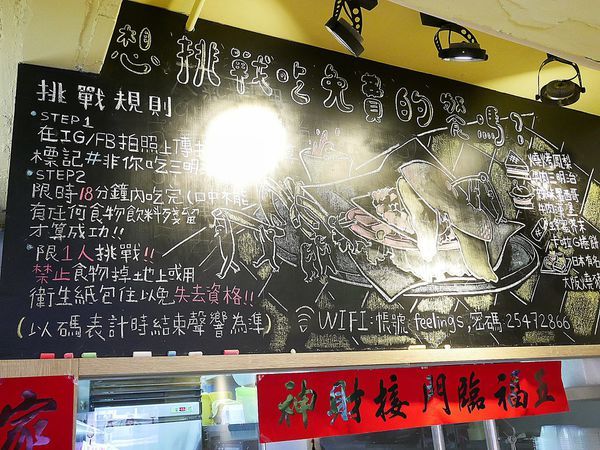 想挑戰吃免費的餐嗎?
挑戰規則
STEP1
在IG/FB拍照上傳
標記#非你吃三明
STEP2
限時18分鐘內吃完(口中不能
有任何食物飲料殘留
才算成功!!
限1人挑戰!!
禁止食物掉地上或用
衛生紙包住以免失去資格!!
(以碼表計時結束聲響為準)
WIFI:帳號:feelings,密碼25472866
燒烤鳳梨
三明治
日本
大阪燒
家
神財接門臨福五